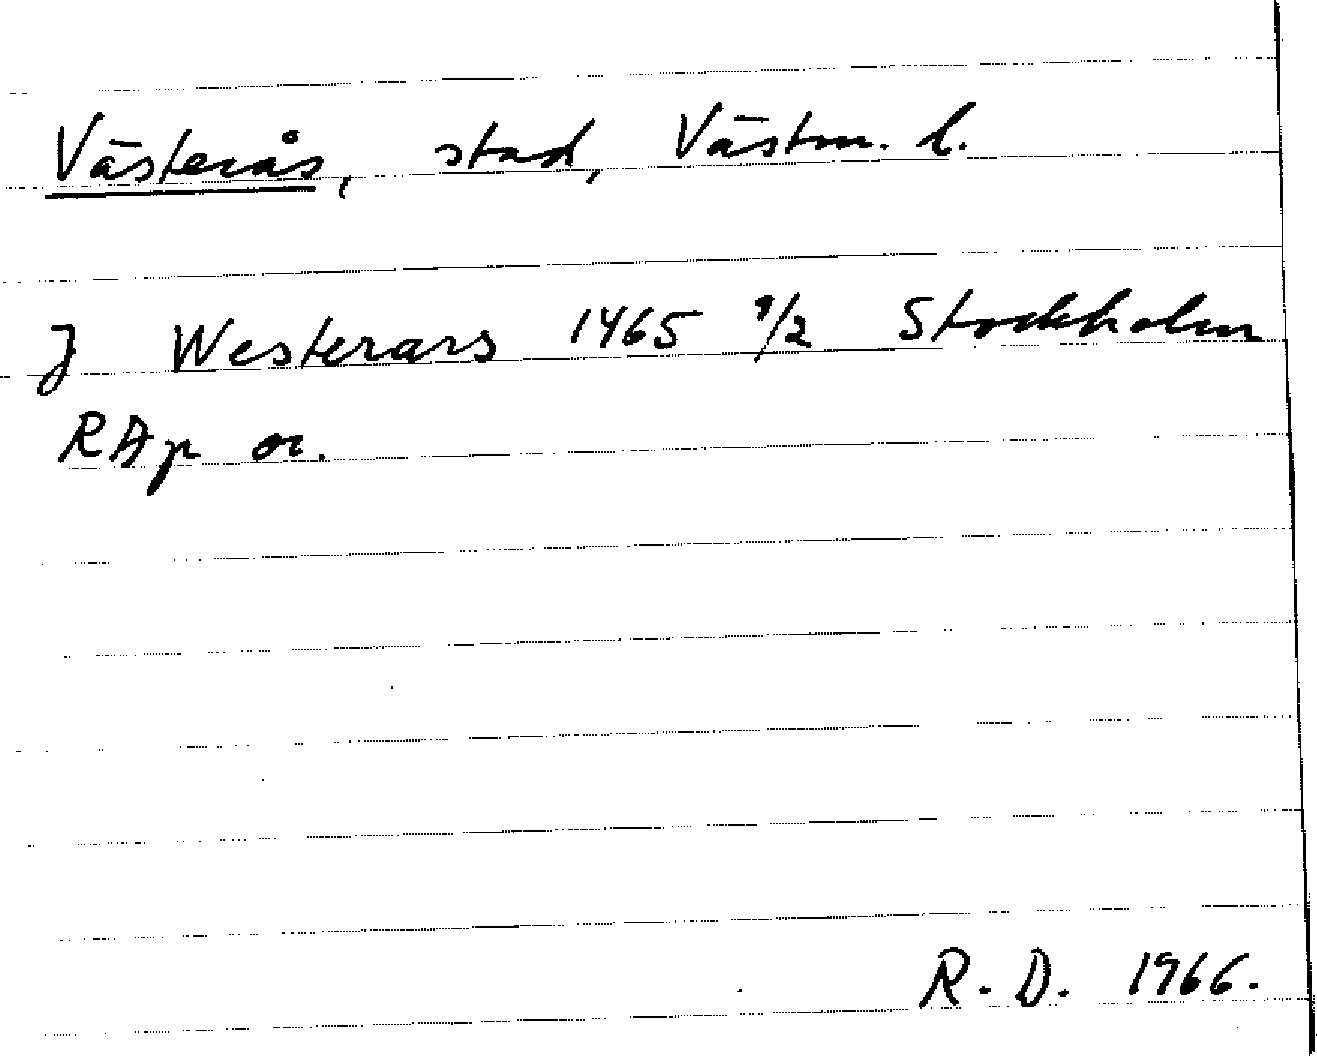 Västerås, stad, Västm. l.
J Westerars 1465 9/2 Stockholm
RAp or.
R. D. 1966.